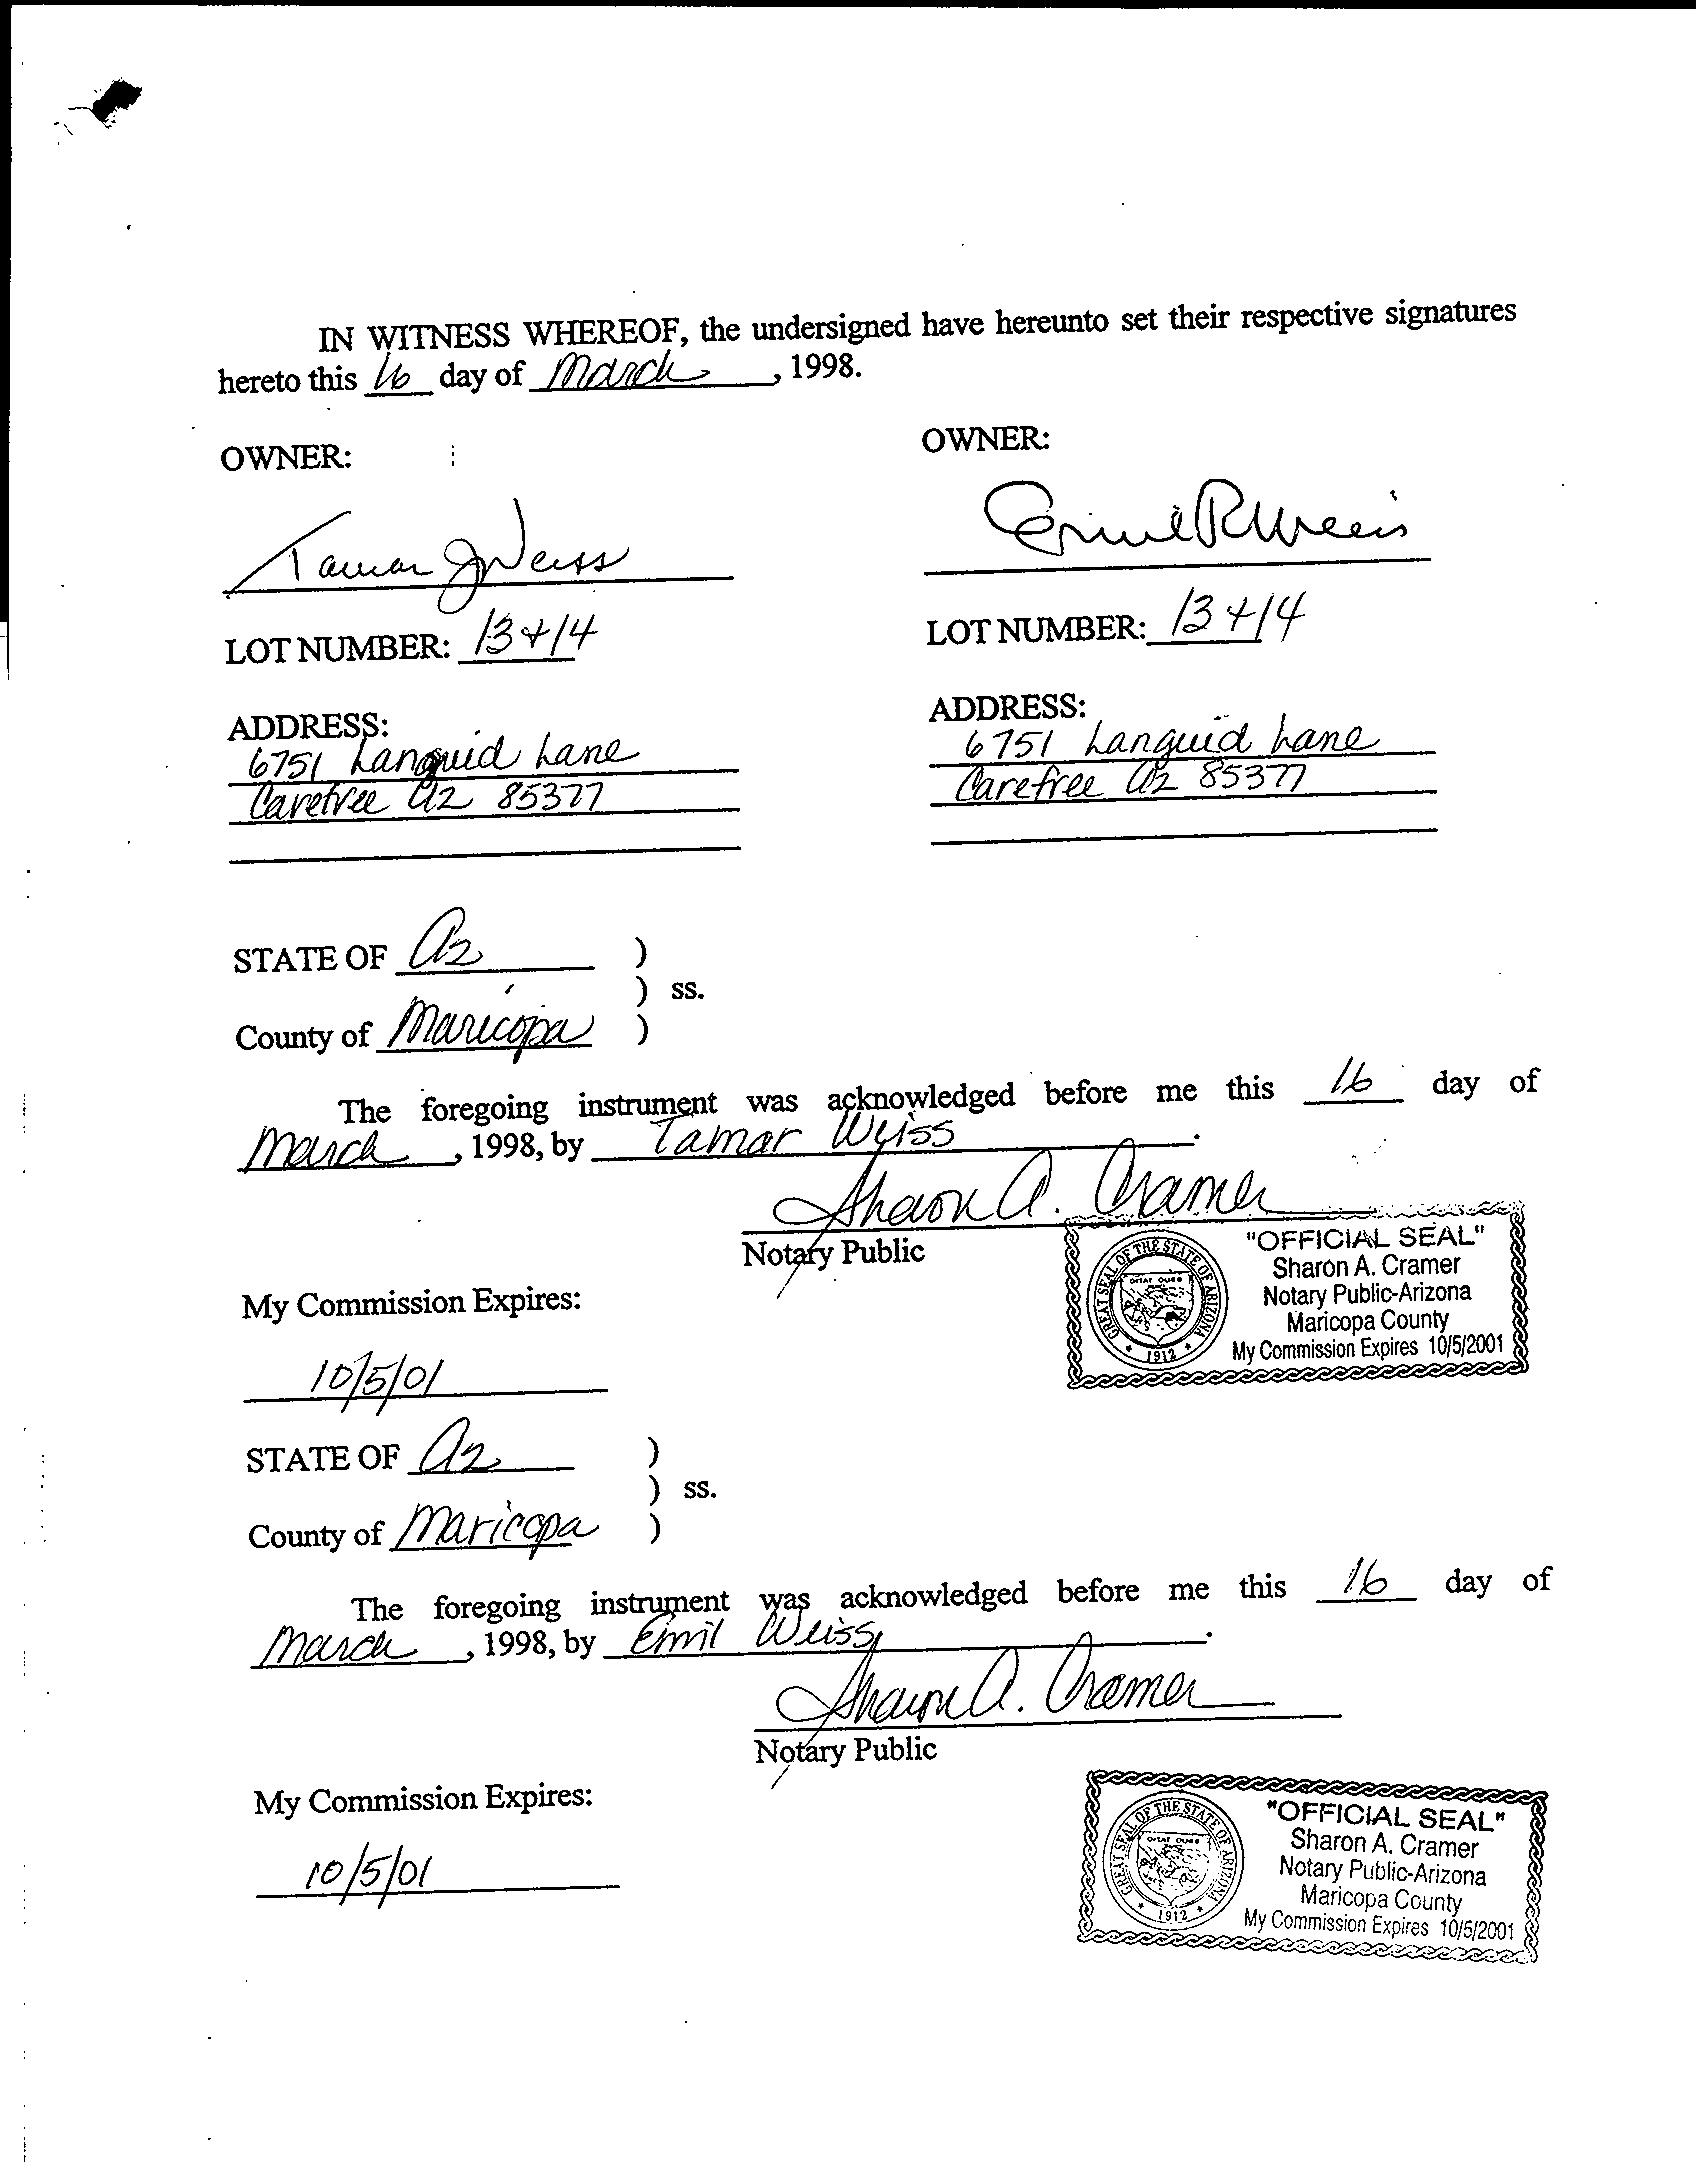 IN WITNESS WHEREOF, the undersigned have hereunto set their respective signatures
hereto this 16 day of March, 1998.
OWNER:
Tamar J Weiss
LOT NUMBER: 13+14
ADDRESS:
6751 Languid Lane
Carefree Az 85377
OWNER:
Emil R Weiss
LOT NUMBER: 13+14
ADDRESS:
6751 Languid Lane
Carefree Az 85377
STATE OF Az )
) ss.
County of Maricopa )
The foregoing instrument was acknowledged before me this 16 day of
March, 1998, by Tamar Weiss.
Sharon A. Cramer
Notary Public
"OFFICIAL SEAL"
Sharon A. Cramer
Notary Public-Arizona
Maricopa County
My Commission Expires 10/5/2001
GREAT SEAL OF THE STATE OF ARIZONA
1912
My Commission Expires:
10/5/01
STATE OF Az )
) ss.
County of Maricopa )
The foregoing instrument was acknowledged before me this 16 day of
March, 1998, by Emil Weiss.
Sharon A. Cramer
Notary Public
My Commission Expires:
10/5/01
"OFFICIAL SEAL"
Sharon A. Cramer
Notary Public-Arizona
Maricopa County
My Commission Expires 10/5/2001
GREAT SEAL OF THE STATE OF ARIZONA
1912